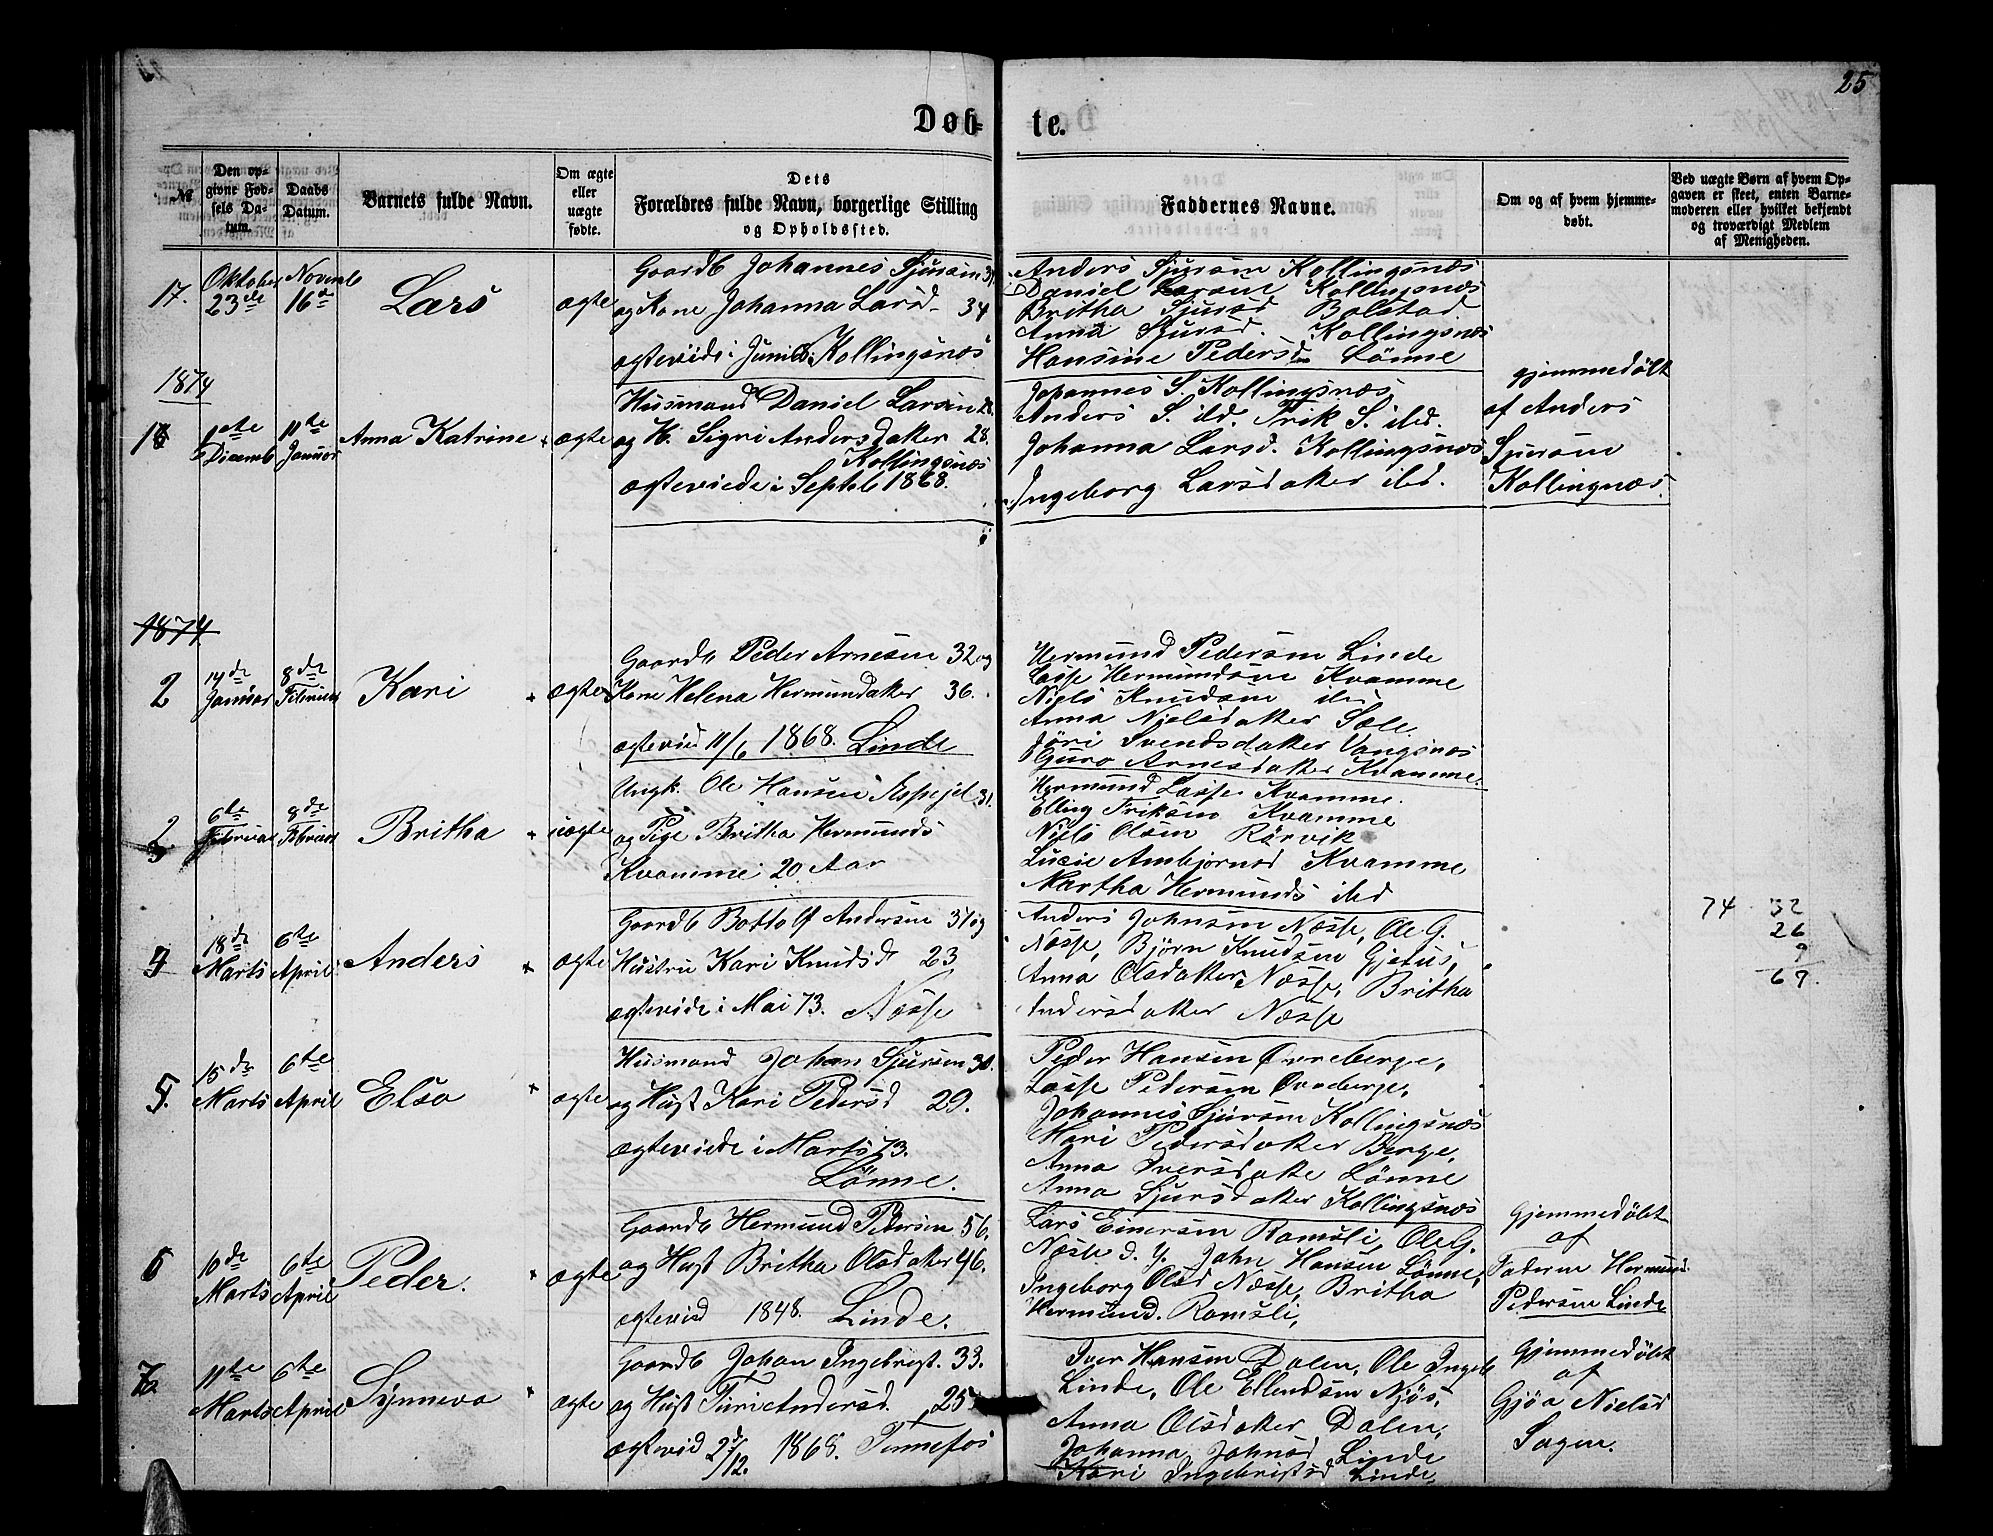 25
Døb-
te.
№
Den op-
givne Fød-
sels Da-
tum.
Daabs
Datum.
Barnets fulde Navn.
Om ægte
eller
uægte
fødte.
Dets
Forældres fulde Navn, borgerlige Stilling
og Opholdssted.
Faddernes Navne.
Om og af hvem hjemme-
døbt.
Ved uægte Børn af hvem Op-
gaven er skeet, enten Barne-
moderen eller hvilket bekjendt
og troværdigt Medlem
af Menigheden.
17.
Oktober
23de
Novemb
16de
Lars
ægte
Gaardb Johannes Sjursøn
og Kone Johanna Larsd. 34
ægteviede i Kollingsnæs
Anders Sjursøn Kollingsnæs
Daniel Larsøn Kollingsnæs
Britha Sjursd Bolstad
Anna Sjursd. Kollingsnæs
Hansine Pedersd Lønne
1874
1ste
Decemb
11te
Januar
Anna Katrine
ægte
Husmand Daniel Larsen
og H. Sigri Andersdatter 28.
Kollingsnæs
ægteviede i Septbr 1868.
Johannes S. Kollingsnæs
Anders S. ibd. Erik S. ibd.
Johanna Larsd. Kollingsnæs
Ingeborg Larsdatter ibd.
Gjemmedøbt
af Anders
Sjursøn
Kollingnæs.
1874
2
14de
Januar
8de
Februar
Kari
ægte
Gaardb Peder Arnesen 32 og
Kone Helena Hermundsdatter 36.
ægteviet 11/6 1868. Linde
Hermund Pedersøn Linde
Lasse Hermundsøn Kvamme
Niels Knudsøn ibd
Anna Nielsdatter Sæle
Jøri Svendsdatter Vangsnæs
Guro Arnesdatter Kvamme.
3
6te
Februar
8de
Februar
Britha
uægte
Ungk. Ole Hansen 31.
og Pige Britha Hermunds
Kvamme 20 Aar
Hermund Lasse Kvamme.
Elling Eriksøn Kvamme
Niels Olsøn Rørvik
Lucie Ambjørnsd Kvamme
Martha Hermunds ibd
4
18de
Marts
6te
April
Anders
ægte
Gaardb Bottolf Andersen 37 og
Hustru Kari Knudsd 23
ægteviede i Mai 73. Næsse
Anders Johnsøn Næsse, Ole G.
Næsse, Bjørn Knudsøn
Anna Olsdatter Næsse, Britha
Andersdatter Næsse
74 32
26
9
67.
5.
15de
Marts
6te
April
Elsa
ægte
Husmand Johan Sjursen 30.
og Hust Kari Pedersd 29.
ægteviede i Marts 73.
Lønne.
Peder Hansen Øvreberge,
Lasse Pedersøn Øvreberge,
Johannes Sjursøn Kollingsnæs
Mari Pedersdatter Berge,
Anna Iversdatte Lønne
Anna Sjursdatter Kollingsnæs
6
10de
Marts
6te
April
Peder.
ægte
Gaardb Hermund Pedersen 56.
og Hust Britha Olsdatter 46.
ægteviet 1848. Linde.
Lars Einersøn Ramsli, Ole G.
Næsse d. y. John Hansen Lønne,
Ingeborg Olsd Næsse, Britha
Hermund. Ramsli,
Gjemmedøbt
af
Faderen Hermund
Pedersøn Linde
7
11te
Marts
6te
April
Synneva
ægte
Gaardb Johan Ingebrigt. 33.
og Hust Turi Andersd. 25
ægteviet 1868. Tennefos
Iver Hansen Dalen, Ole Ingeb
Linde, Ole Ellendsøn Njøs,
Anna Olsdatter Dalen,
Johanna Johnsd Linde
Kari Ingebrigtsd Linde
Gjemmedøbt
af
Gjøa Nielsd
Sagen.